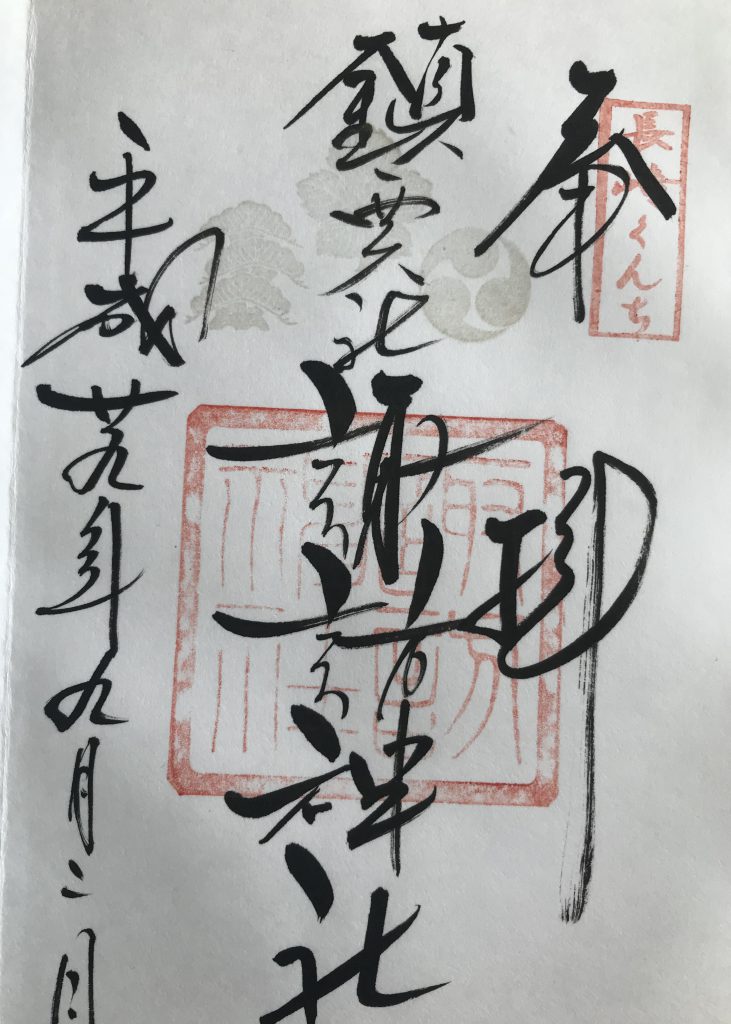 長崎くんち
奉拝
鎮西大社 諏訪神社
平成廿九年九月二日